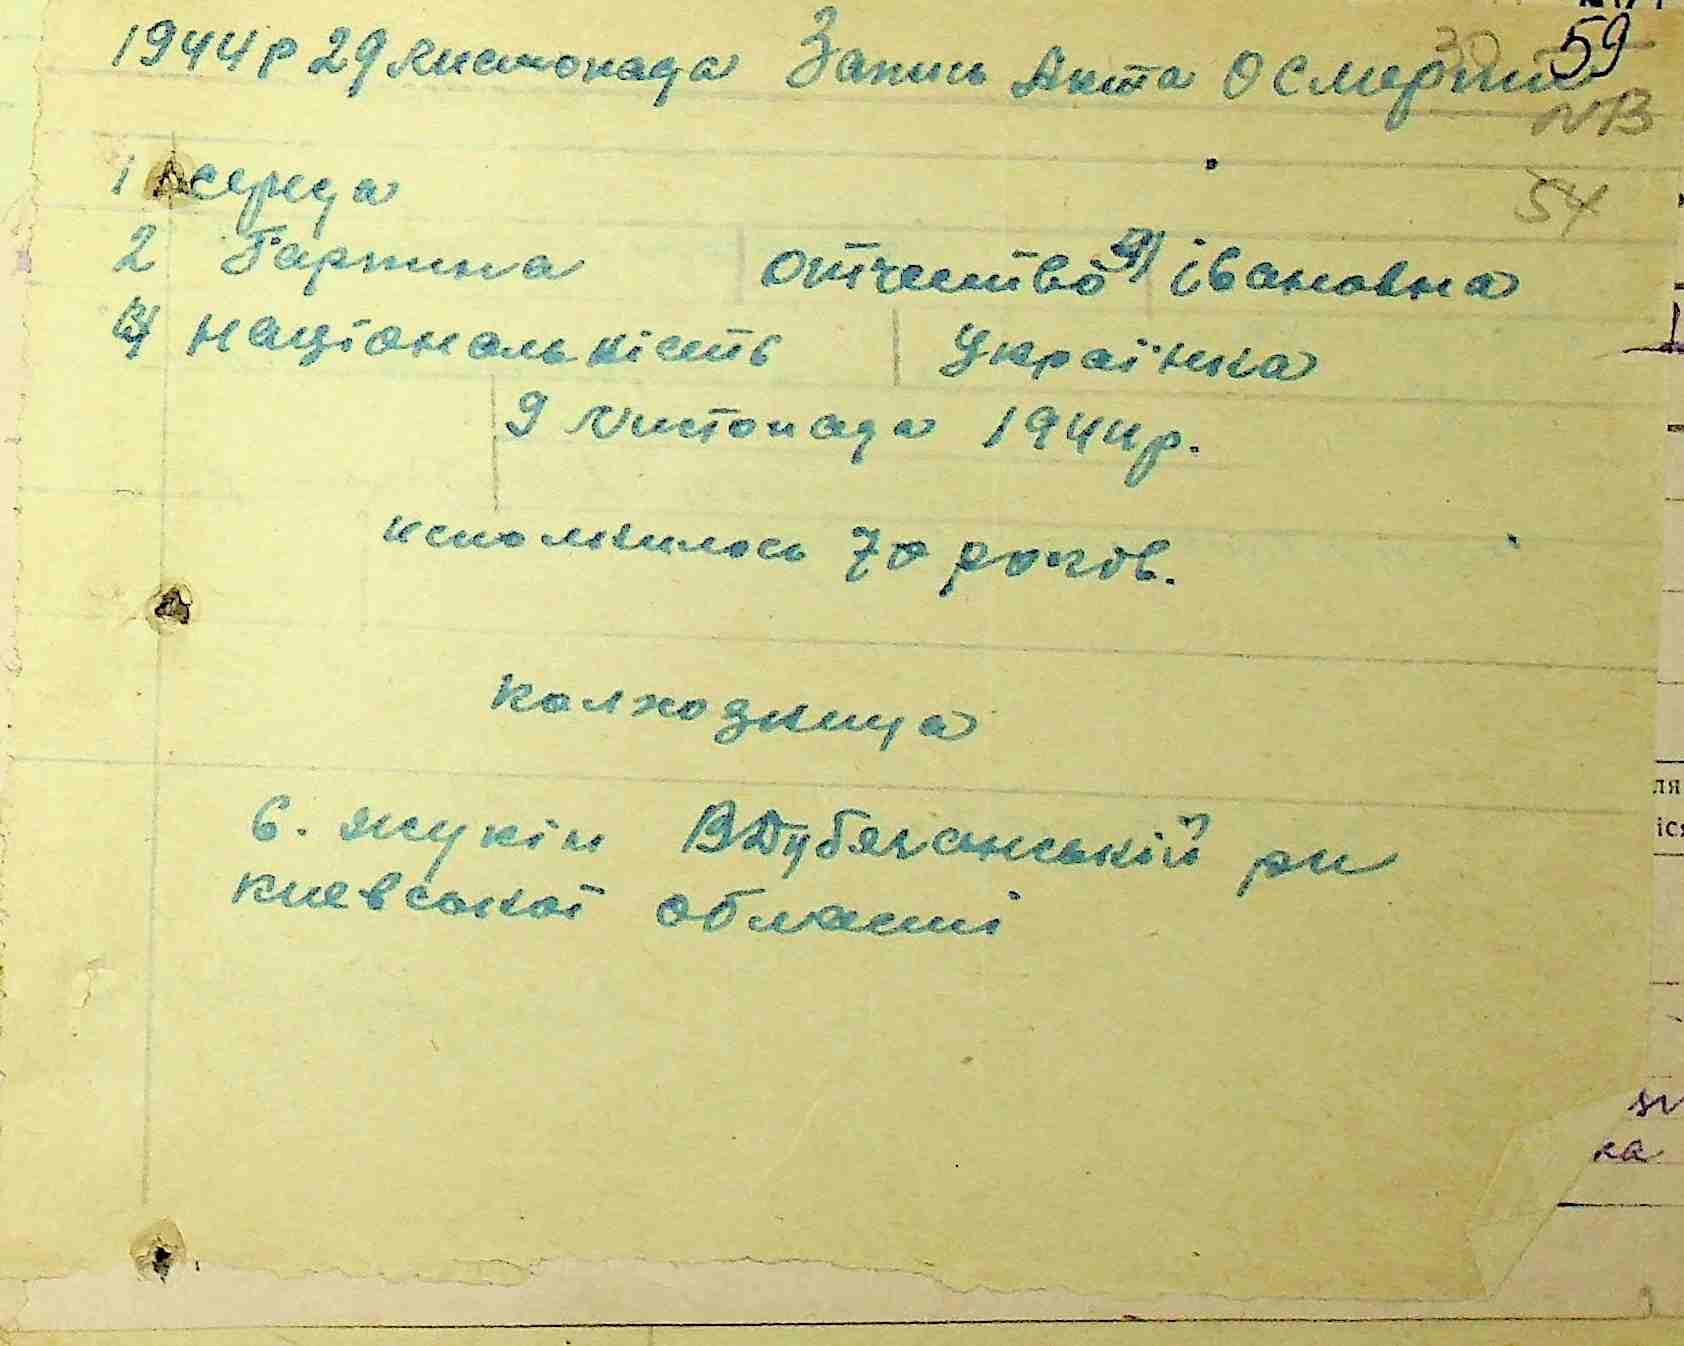 59
1944 р 29 листопада Запись Акта О Смерти
30
NB
1 середа
54
2 Гарпина отчество Івановна
національність Українка
9 листопада 1944р.
исполнилось 70 рогов.
колхозница
С. Жукін ВДубечанській рн
Киевської області
ля
іся
ка